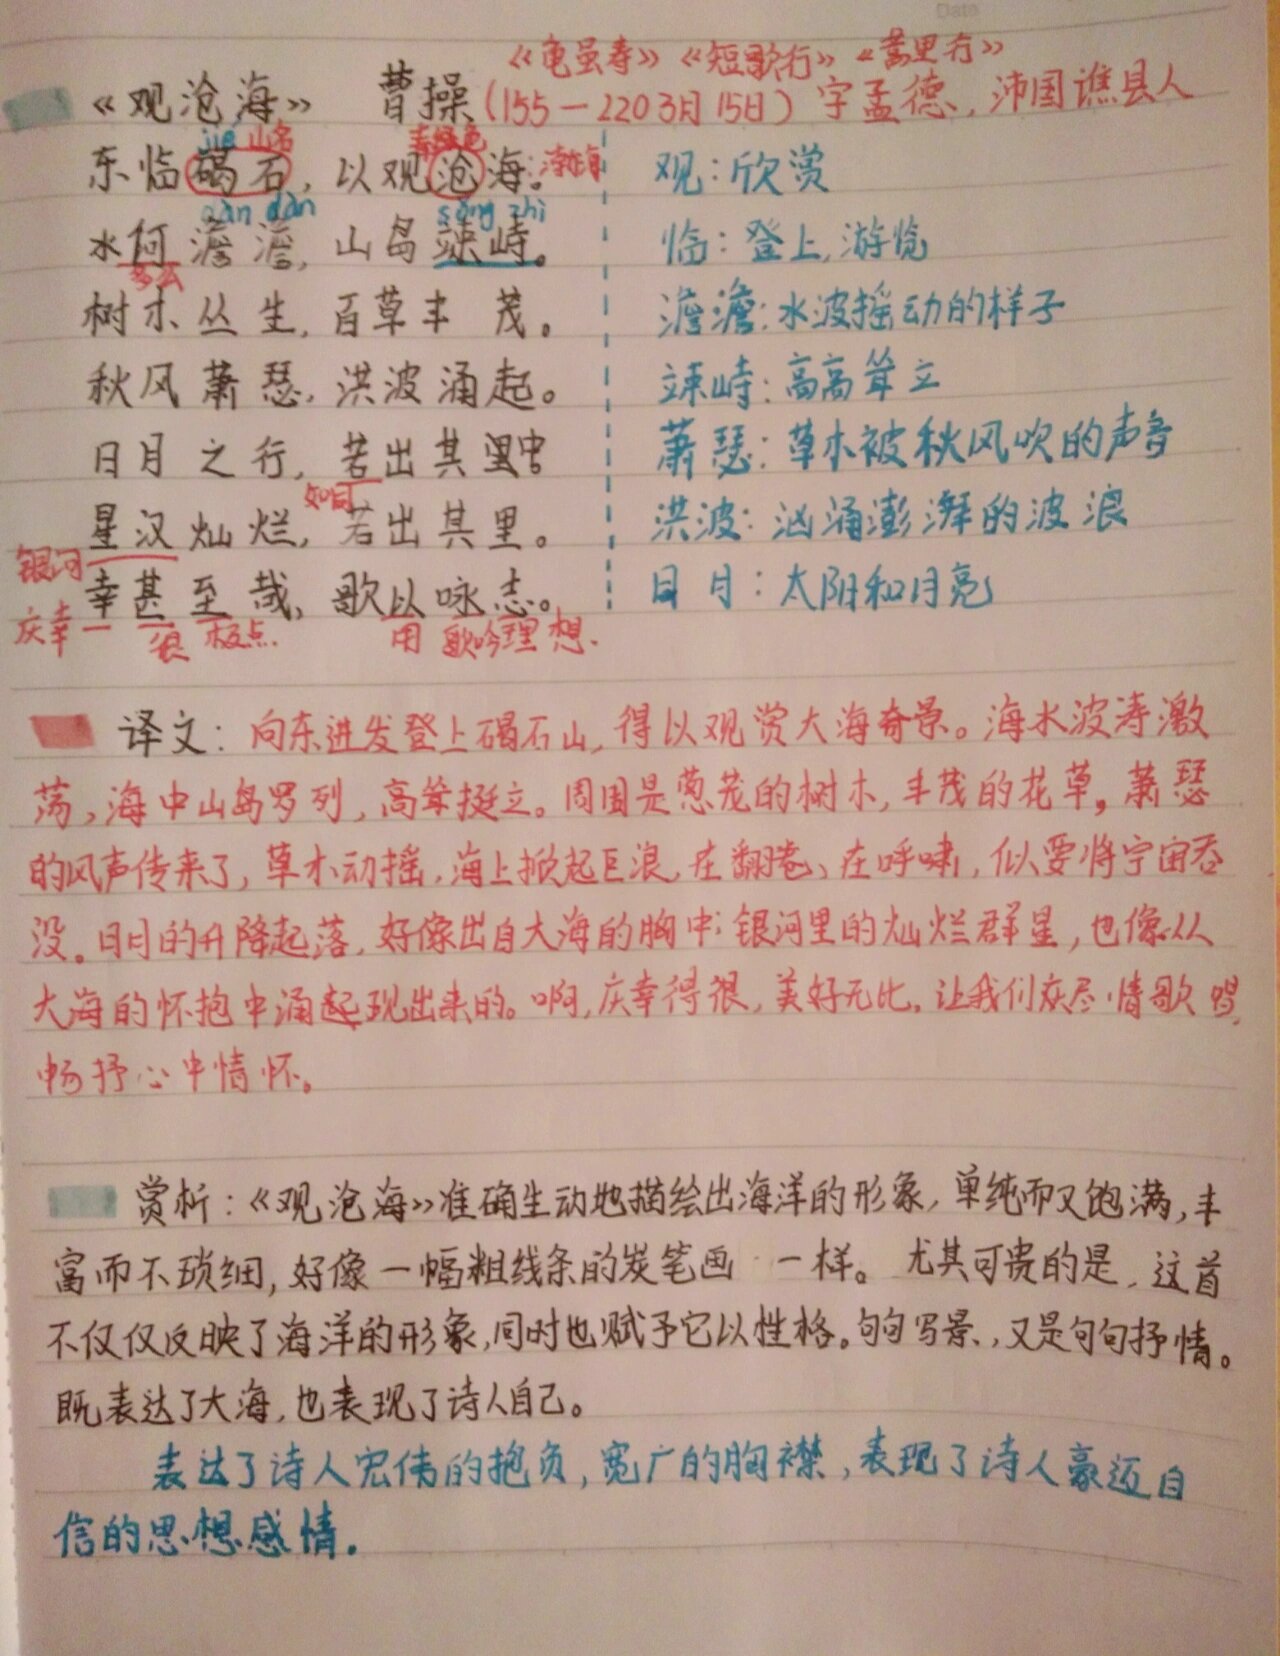 Date
《龟虽寿》《短歌行》《蒿里行》
《观沧海》 曹操(155—220 3月15日)字孟德,沛国谯县人
jié 山名 青绿色
东临碣石,以观沧海。:渤海 观:欣赏
dàn dàn sǒng zhì
水何澹澹,山岛竦峙。 临:登上,游览
多么
树木丛生,百草丰茂。 澹澹:水波摇动的样子
秋风萧瑟,洪波涌起。 竦峙:高高耸立
日月之行,若出其中 萧瑟:草木被秋风吹的声音
如同
星汉灿烂,若出其里。 洪波:汹涌澎湃的波浪
银河
幸甚至哉,歌以咏志。 日月:太阳和月亮
庆幸 很 极点. 用 歌吟理想.
译文:向东进发登上碣石山,得以观赏大海奇景。海水波涛激
荡,海中山岛罗列,高耸挺立。周围是葱茏的树木,丰茂的花草,萧瑟
的风声传来了,草木动摇,海上掀起巨浪,在翻卷、在呼啸,似要将宇宙吞
没。日月的升降起落,好像出自大海的胸中;银河里的灿烂群星,也像从
大海的怀抱中涌起现出来的。啊,庆幸得很,美好无比,让我们尽情歌唱,
畅抒心中情怀。
赏析:《观沧海》准确生动地描绘出海洋的形象,单纯而又饱满,丰
富而不琐细,好像一幅粗线条的炭笔画一样。尤其可贵的是,这首
不仅仅反映了海洋的形象,同时也赋予它以性格。句句写景,又是句句抒情。
既表达了大海,也表现了诗人自己。
表达了诗人宏伟的抱负,宽广的胸襟,表现了诗人豪迈自
信的思想感情.